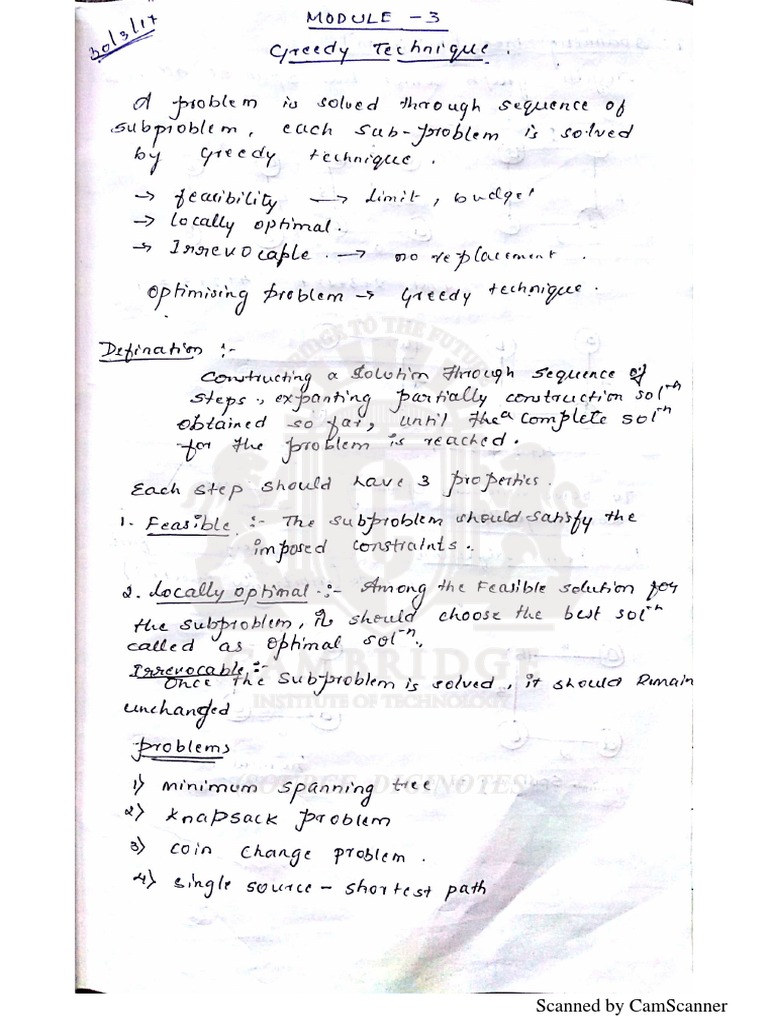 30/3/17
MODULE - 3
Greedy Technique.
A problem is solved through sequence of
subproblem, each sub-problem is solved
by Greedy technique.
→ feasibility → limit, budget
→ locally optimal.
→ Irrevocable. → no replacement.
Optimising problem → Greedy technique.
Defination :-
Constructing a solution through sequence of
steps, expanting partially construction sol-n
obtained so far, until the a complete sol-n
for the problem is reached.
Each step should have 3 properties.
1. Feasible :- The subproblem should satisfy the
imposed constraints.
2. Locally optimal :- Among the Feasible solution for
the subproblem, it should choose the best sol-n
called as optimal sol-n.
Irrevocable :-
Once the subproblem is solved, it should Remain
unchanged
Problems
1) minimum spanning tree
2) knapsack problem
3) coin change problem.
4) single source - shortest path
BRIDGE TO THE FUTURE
CAMBRIDGE
INSTITUTE OF TECHNOLOGY
(SOURCE DIGINOTES)
Scanned by CamScanner